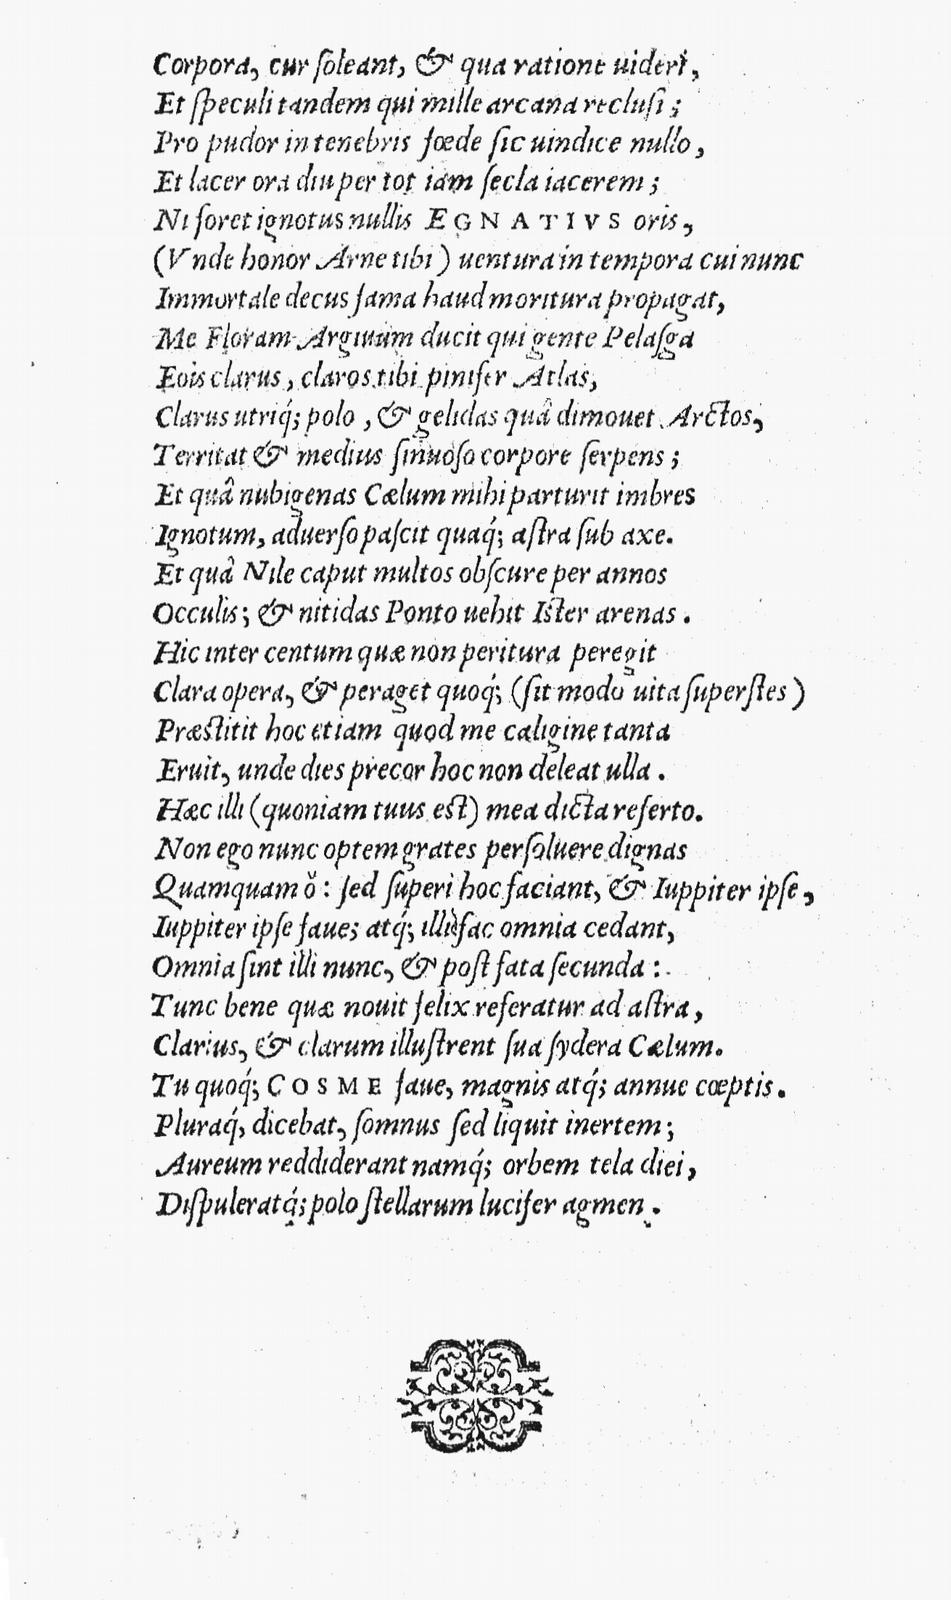 Corpora, cur ſoleant, & qua ratione uideri,
Et ſpeculi tandem qui mille arcana recluſi;
Pro pudor in tenebris fœde ſic uindice nullo,
Et lacer ora diu per tot iam ſecla iacerem;
Ni foret ignotus nullis EGNATIVS oris,
(Vnde honor Arne tibi) uentura in tempora cui nunc
Immortale decus fama haud moritura propagat,
Me Floram Arginum ducit qui gente Pelaſga
Eois clarus, claros tibi pinifer Atlas,
Clarus utriq́; polo, & gelidas quâ dimouet Arctos,
Territat & medius ſinuoſo corpore ſerpens;
Et quâ nubigenas Cælum mihi parturit imbres
Ignotum, aduerſo paſcit quaq́; aſtra ſub axe.
Et quâ Nile caput multos obſcure per annos
Occulis; & nitidas Ponto uehit Iſter arenas.
Hic inter centum quæ non peritura peregit
Clara opera, & peraget quoq́; (ſit modo uita ſuperſtes)
Præſtitit hoc etiam quod me caligine tanta
Eruit, unde dies precor hoc non deleat ulla.
Hæc illi (quoniam tuus eſt) mea dicta referto.
Non ego nunc optem grates perſoluere dignas
Quamquam ŏ: ſed ſuperi hoc faciant, & Iuppiter ipſe,
Iuppiter ipſe faue; atq́; illi fac omnia cedant,
Omnia ſint illi nunc, & poſt fata ſecunda:
Tunc bene quæ nouit felix referatur ad aſtra,
Clarius, & clarum illuſtrent ſua ſydera Cælum.
Tu quoq́; COSME faue, magnis atq́; annue cœptis.
Pluraq́, dicebat, ſomnus ſed liquit inertem;
Aureum reddiderant namq́; orbem tela diei,
Diſpuleratq́; polo ſtellarum lucifer agmen.